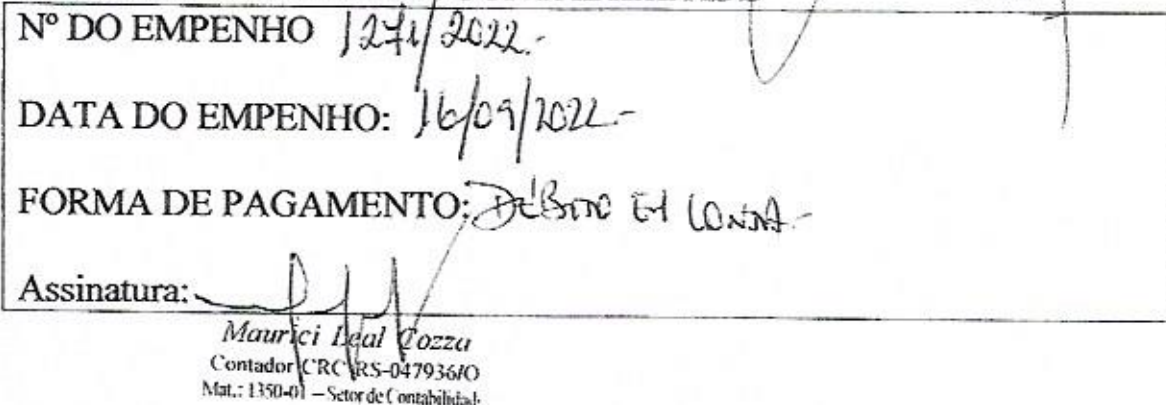 Nº DO EMPENHO 1271/2022.-
DATA DO EMPENHO: 16/09/2022-
FORMA DE PAGAMENTO: DÉBITO EM CONTA-
Assinatura:
Maurici Leal Cozza
Contador CRC RS-047936/O
Mat.: 1350-01 – Setor de Contabilidade